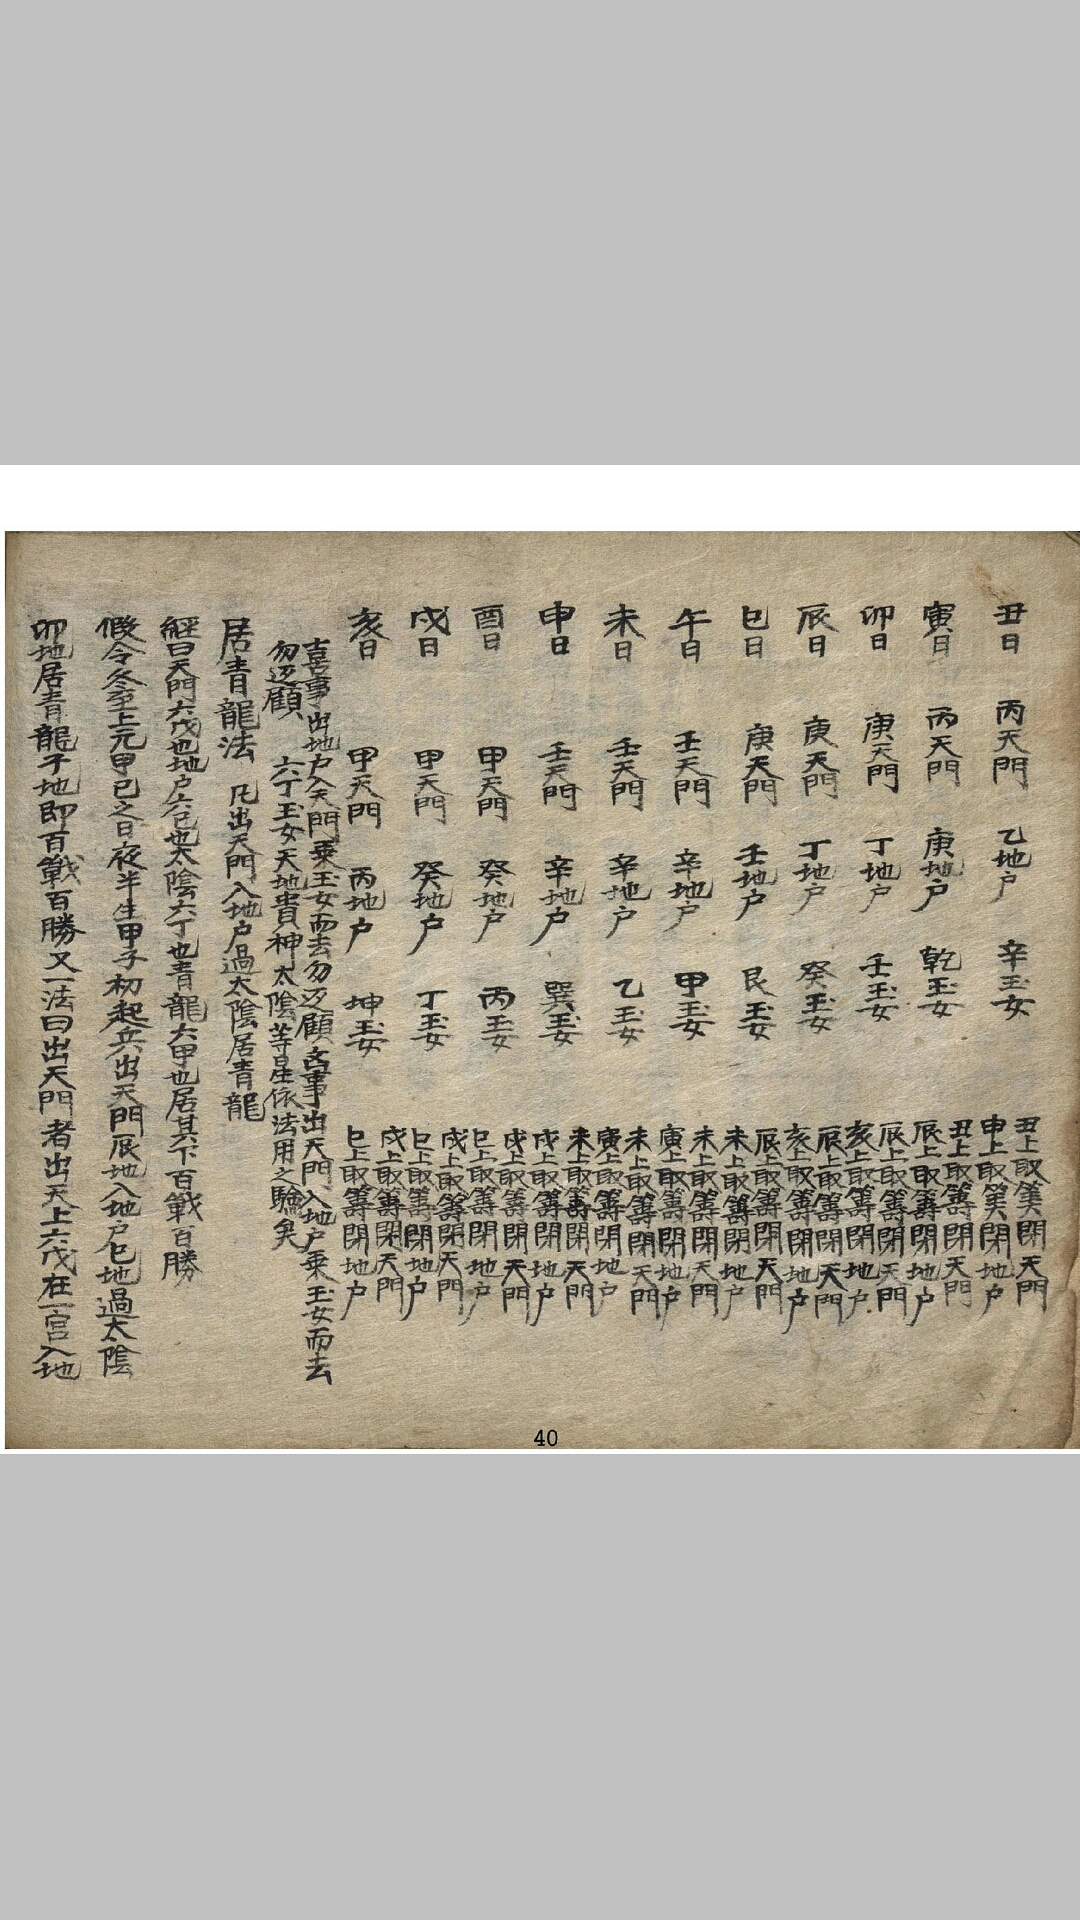 丑日 丙天門 乙地户 辛玉女 丑上取筭閉天門 申上取筭閉地户
寅日 丙天門 庚地户 乾玉女 丑上取籌閉天門 辰上取籌閉地户
卯日 庚天門 丁地户 壬玉女 辰上取籌閉天門 亥上取籌閉地户
辰日 庚天門 丁地户 癸玉女 辰上取籌閉天門 亥上取籌閉地户
巳日 庚天門 壬地户 艮玉女 辰上取籌閉天門 未上取籌閉地户
午日 壬天門 辛地户 甲玉女 未上取籌閉天門 寅上取籌閉地户
未日 壬天門 辛地户 乙玉女 未上取籌閉天門 寅上取籌閉地户
申日 壬天門 辛地户 巽玉女 未上取籌閉天門 戌上取籌閉地户
酉日 甲天門 癸地户 丙玉女 戌上取籌閉天門 巳上取籌閉地户
戌日 甲天門 癸地户 丁玉女 戌上取籌閉天門 巳上取籌閉地户
亥日 甲天門 丙地户 坤玉女 戌上取籌閉天門 巳上取籌閉地户
喜事出地户入天門乗玉女而去勿返顧 事出天門入地户乗玉女而去
勿返顧 六丁玉女天地貴神太陰等星依法用之驗矣
居青龍法 凡出天門入地户過太陰居青龍
經曰天門六戊也地户六己也太陰六丁也青龍六甲也居其下百戰百勝
假令冬至上元甲己之日夜半生甲子初起兵出天門辰地入地户巳地過太陰
卯地居青龍子地即百戰百勝又一法曰出天門者出天上六戊在一宮入地
40